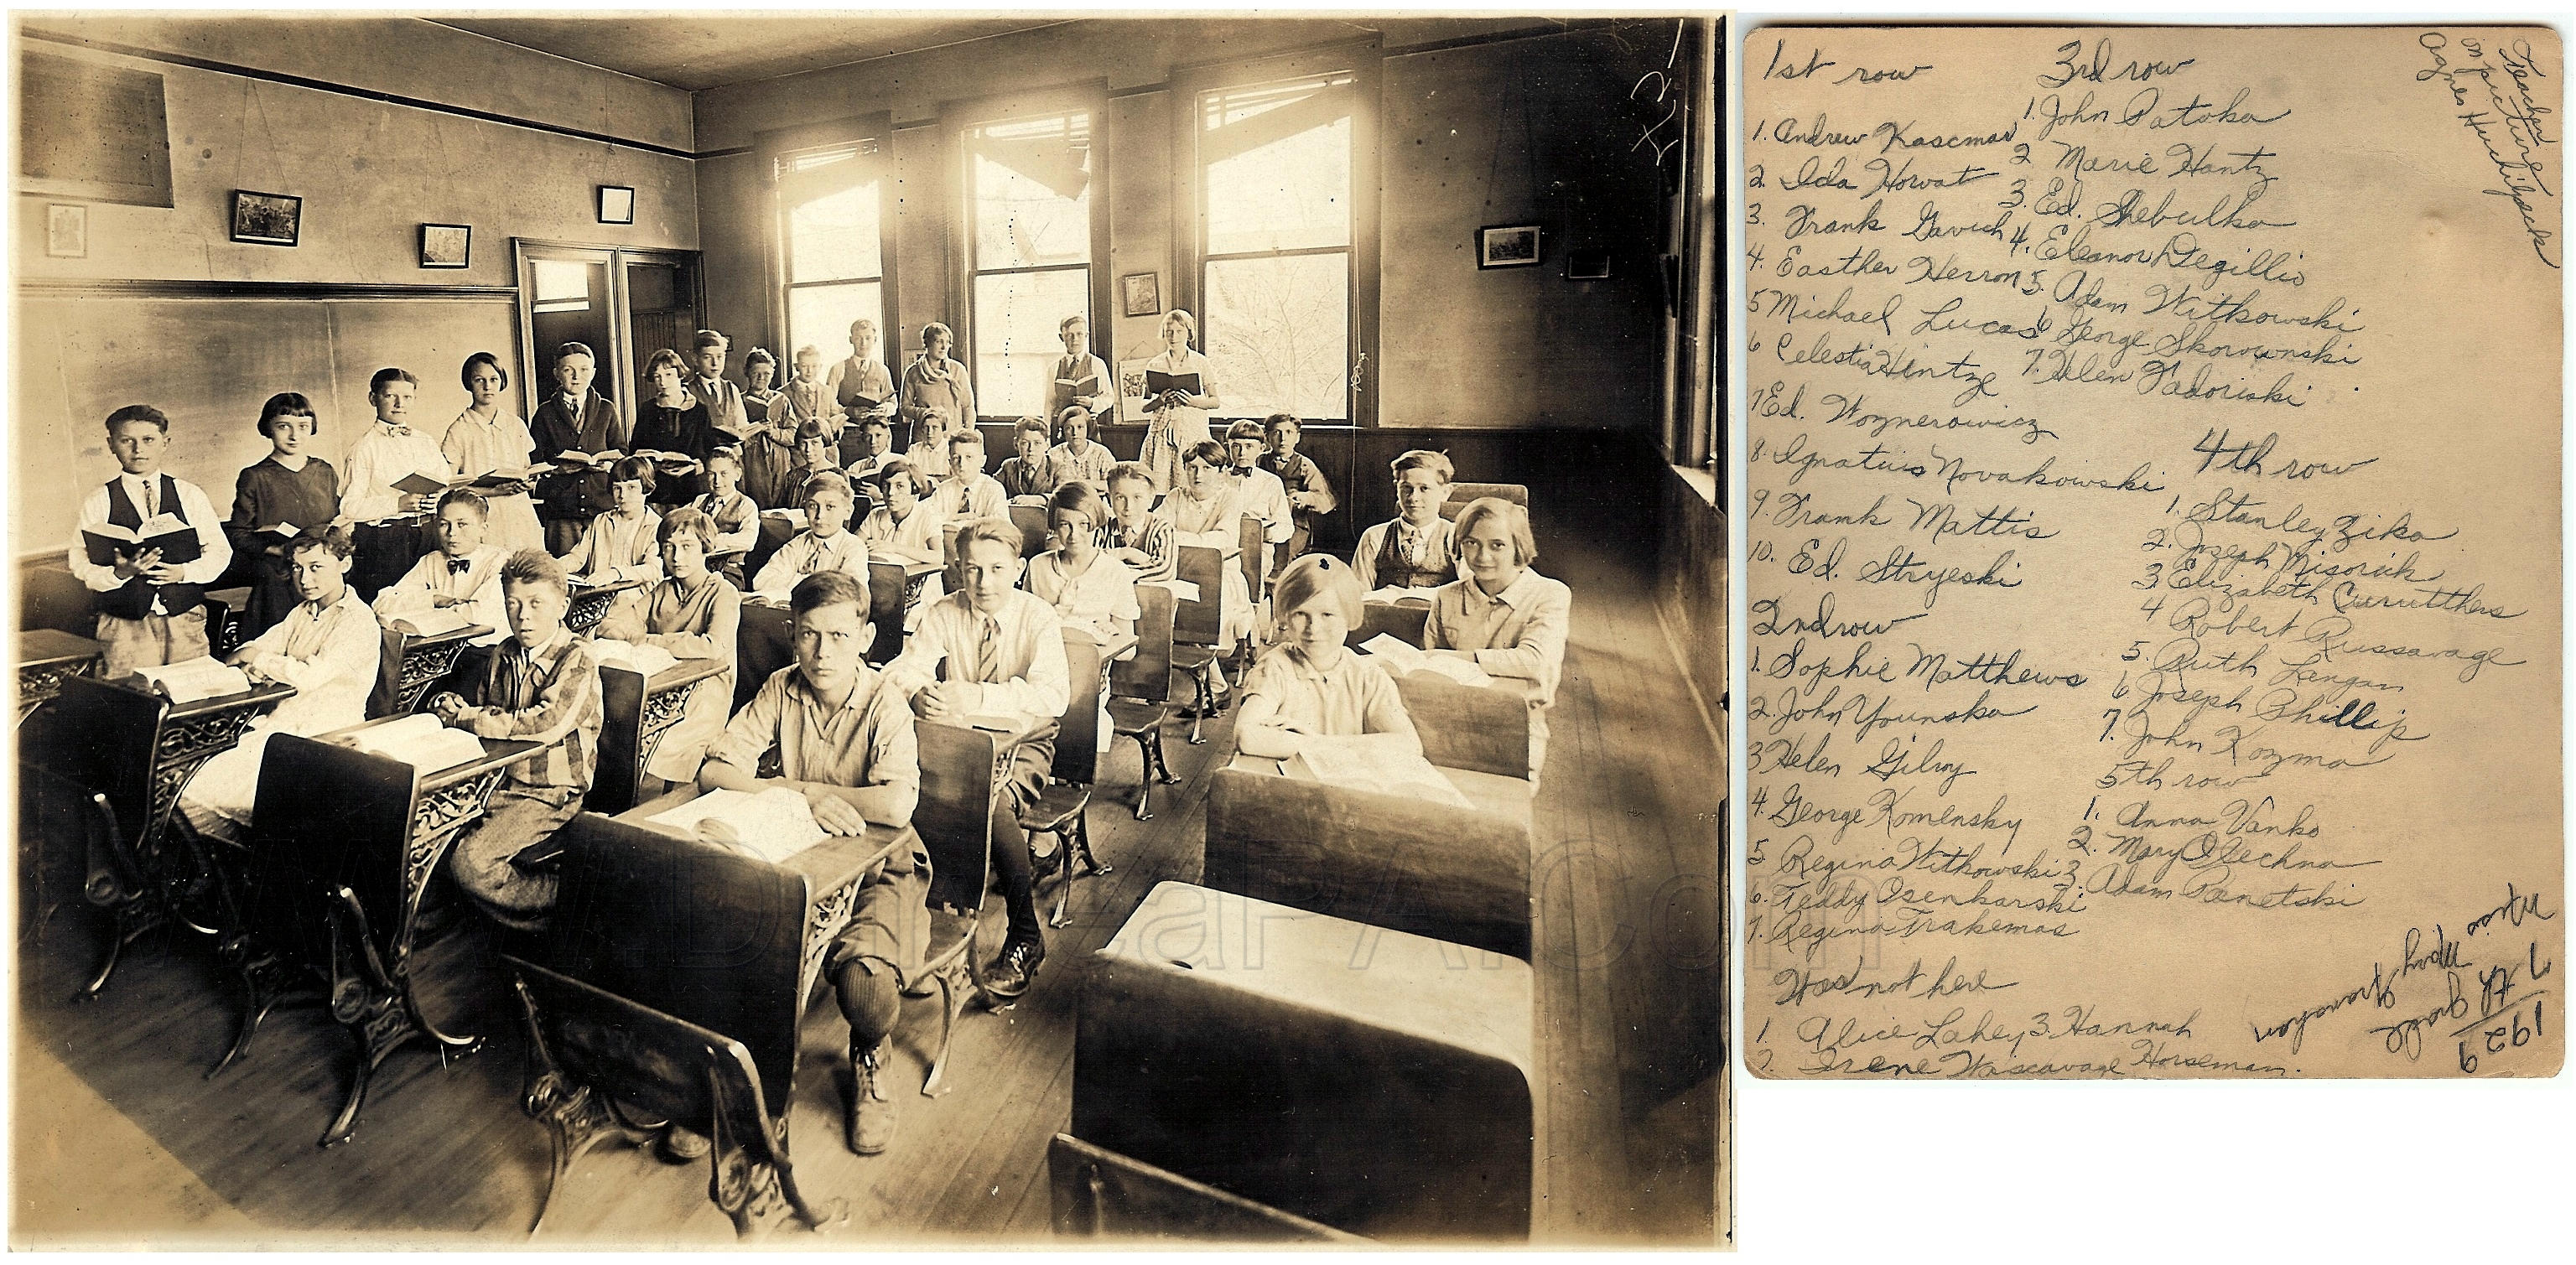 1st row
1. Andrew Kascmar
2. Ida Horvat
3. Frank Gavich
4. Easther Herron
5 Michael Lucas
6 Celestia Hintze
7 Ed. Woznerowicz
8. Ignatius Novakowski
9. Frank Mattis
10. Ed. Stryeski
2nd row
1. Sophie Matthews
2. John Younska
3 Helen Gilroy
4. George Komensky
5 Regina Witkowski
6. Teddy Osenkarski
7. Regina Trakemas
Was not here
1. Alice Lahey
2. Irene Wascavage
3. Hannah Horseman.
3rd row
1. John Patoka
2 Marie Hantz
3. Ed. Shebulka
4. Eleanor Degillio
5. Adam Witkowski
6 George Skorownski
7. Helen Fadoriski
4th row
1. Stanley Ziko
2. Joseph
3 Elizabeth Curutthers
4 Robert Russavage
5. Ruth Lengan
6 Joseph Phillip
7. John Kozma
5th row
1. Anna Vanko
2. Mary Olechna
3. Adam Panetski
Teacher
on picture
Agnes
1929
7th grade
Miss Mary
www.DuryeaPA.com